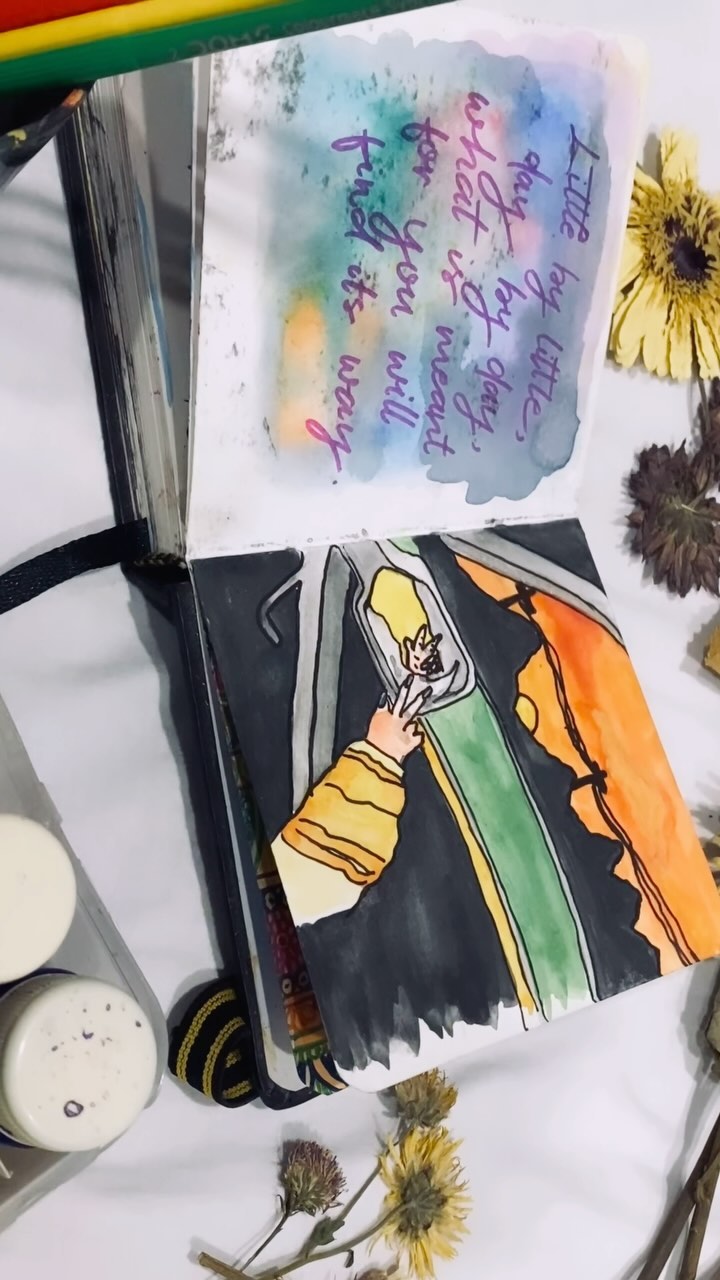 Little by little,
day by day,
what is meant
for you will
find its way.